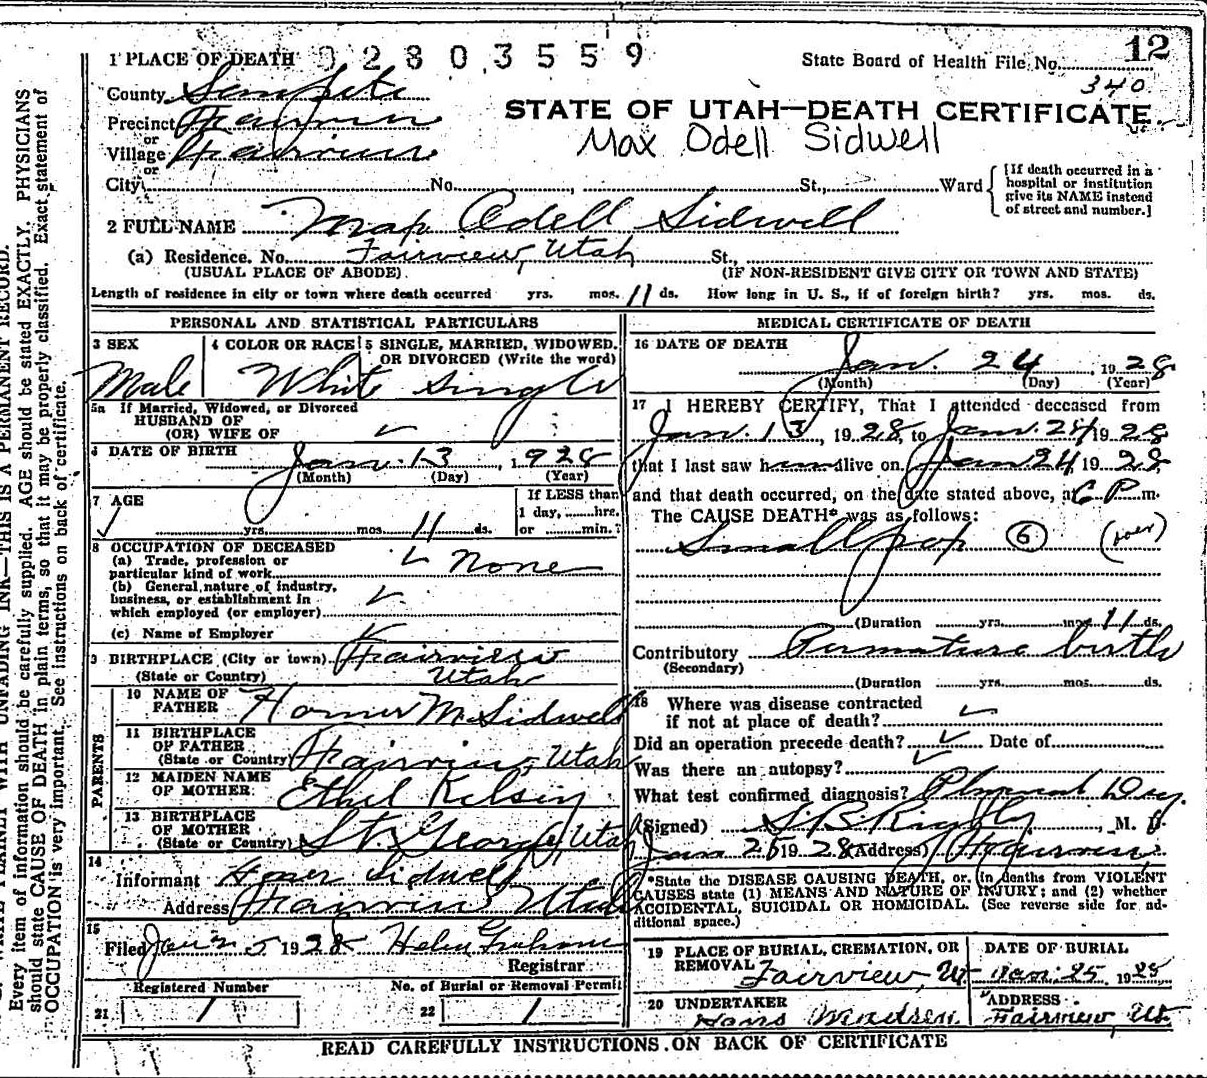 12
1 PLACE OF DEATH 02803559 State Board of Health File No.
340
County Sanpete
STATE OF UTAH—DEATH CERTIFICATE.
Precinct Fairview
Max Odell Sidwell
or
Village Fairview
or
City No. , St., Ward
[If death occurred in a
hospital or institution
give its NAME instead
of street and number.]
2 FULL NAME Max Odell Sidwell
(a) Residence. No. Fairview, Utah St.,
(USUAL PLACE OF ABODE) (IF NON-RESIDENT GIVE CITY OR TOWN AND STATE)
Length of residence in city or town where death occurred yrs. mos. 11 ds. How long in U. S., if of foreign birth? yrs. mos. ds.
PERSONAL AND STATISTICAL PARTICULARS
3 SEX
Male
4 COLOR OR RACE
White
5 SINGLE, MARRIED, WIDOWED,
OR DIVORCED (Write the word)
Single
5a If Married, Widowed, or Divorced
HUSBAND OF
(OR) WIFE OF
6 DATE OF BIRTH
Jan. 13, 1928
(Month) (Day) (Year)
7 AGE
yrs. mos. 11 ds.
If LESS than
1 day, hrs.
or min.?
8 OCCUPATION OF DECEASED
(a) Trade, profession or
particular kind of work None
(b) General nature of industry,
business, or establishment in
which employed (or employer)
(c) Name of Employer
9 BIRTHPLACE (City or town) Fairview
(State or Country) Utah
PARENTS
10 NAME OF
FATHER Homer M. Sidwell
11 BIRTHPLACE
OF FATHER
(State or Country) Fairview, Utah
12 MAIDEN NAME
OF MOTHER Ethel Kelsey
13 BIRTHPLACE
OF MOTHER
(State or Country) St. George, Utah
14
Informant Homer Sidwell
Address Fairview Utah
15
Filed Jan 25 1928 Helen Graham
Registrar
Registered Number No. of Burial or Removal Permit
21 1 22 1
MEDICAL CERTIFICATE OF DEATH
16 DATE OF DEATH
Jan. 24, 1928
(Month) (Day) (Year)
17 I HEREBY CERTIFY, That I attended deceased from
Jan. 13, 1928, to Jan. 24 1928
that I last saw him alive on Jan 24 1928
and that death occurred, on the date stated above, at 6 P m.
The CAUSE DEATH* was as follows:
Smallpox 6 (over)
(Duration yrs. mos. 11 ds.
Contributory Permature birth
(Secondary)
(Duration yrs. mos. ds.
18 Where was disease contracted
if not at place of death?
Did an operation precede death? Date of
Was there an autopsy?
What test confirmed diagnosis?
(Signed) S. B. Rigby, M. D.
Jan 25 1928 (Address) Fairview
*State the DISEASE CAUSING DEATH, or, (in deaths from VIOLENT
CAUSES state (1) MEANS AND NATURE OF INJURY; and (2) whether
ACCIDENTAL, SUICIDAL OR HOMICIDAL. (See reverse side for ad-
ditional space.)
19 PLACE OF BURIAL, CREMATION, OR
REMOVAL Fairview, Ut
DATE OF BURIAL
Jan. 25, 1928
20 UNDERTAKER
Hans
ADDRESS
Fairview, Ut.
READ CAREFULLY INSTRUCTIONS ON BACK OF CERTIFICATE
WRITE PLAINLY WITH UNFADING INK—THIS IS A PERMANENT RECORD.
Every item of information should be carefully supplied. AGE should be stated EXACTLY. PHYSICIANS
should state CAUSE OF DEATH in plain terms, so that it may be properly classified. Exact statement of
OCCUPATION is very important. See instructions on back of certificate.